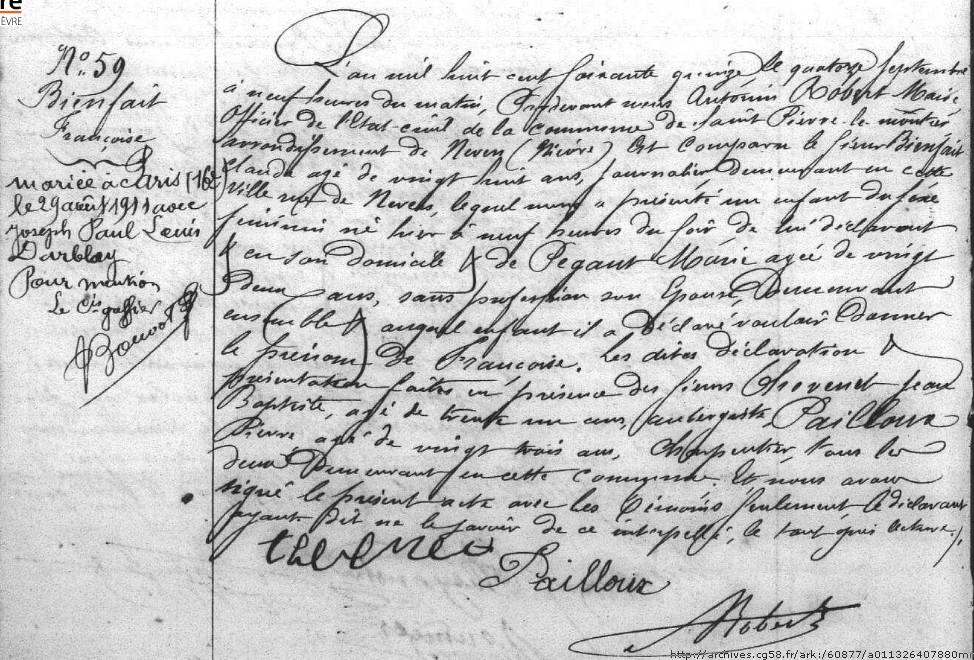 re
ÈVRE
No. 59
Bienfait
Françoise
mariée à Paris (16e)
le 29 août 1911 avec
Joseph Paul Louis
Darblay
Pour mention
Le Cis greffier
L'an mil huit cent soixante quinze le quatorze Septembre
à neuf heures du matin, Pardevant nous Antonin Robert Maire
officier de l'Etat-civil de la commune de Saint Pierre-le moutier
arrondissement de Nevers (Nièvre) Est comparu le sieur Bienfait
Claude agé de vingt huit ans, journalier demeurant en cette
ville de Nevers, lequel nous a présenté un enfant du sexe
féminin né hier à neuf heures du soir de lui déclarant
en son domicile & de Pegant Marie agée de vingt
deux ans, sans profession son Epouse, Demeurant
ensemble & auquel enfant il a Déclaré vouloir Donner
le prénom de Françoise. Les dites déclaration &
présentation faites en présence des sieurs Jean
Baptiste, agé de trente un ans, aubergiste, Pailloux
Pierre agé de vingt trois ans, Charpentier, tous les
deux Demeurant en cette commune. Et nous avons
signé le présent acte avec les témoins seulement le déclarant
ayant dit ne le savoir de ce interpellé, le tout après lecture.
Pailloux
Robert
http://archives.cg58.fr/ark:/60877/a011326407880mi